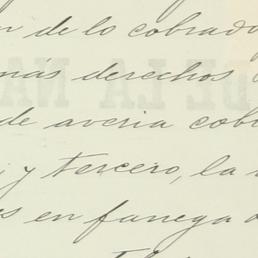 de lo cobrado
más derechos
de averia
y tercero, la
en fanega